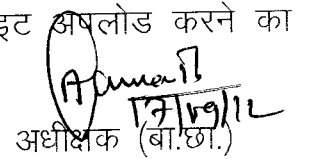 इट अपलोड करने का
17/09/12
अधीक्षक (बा.छा.)